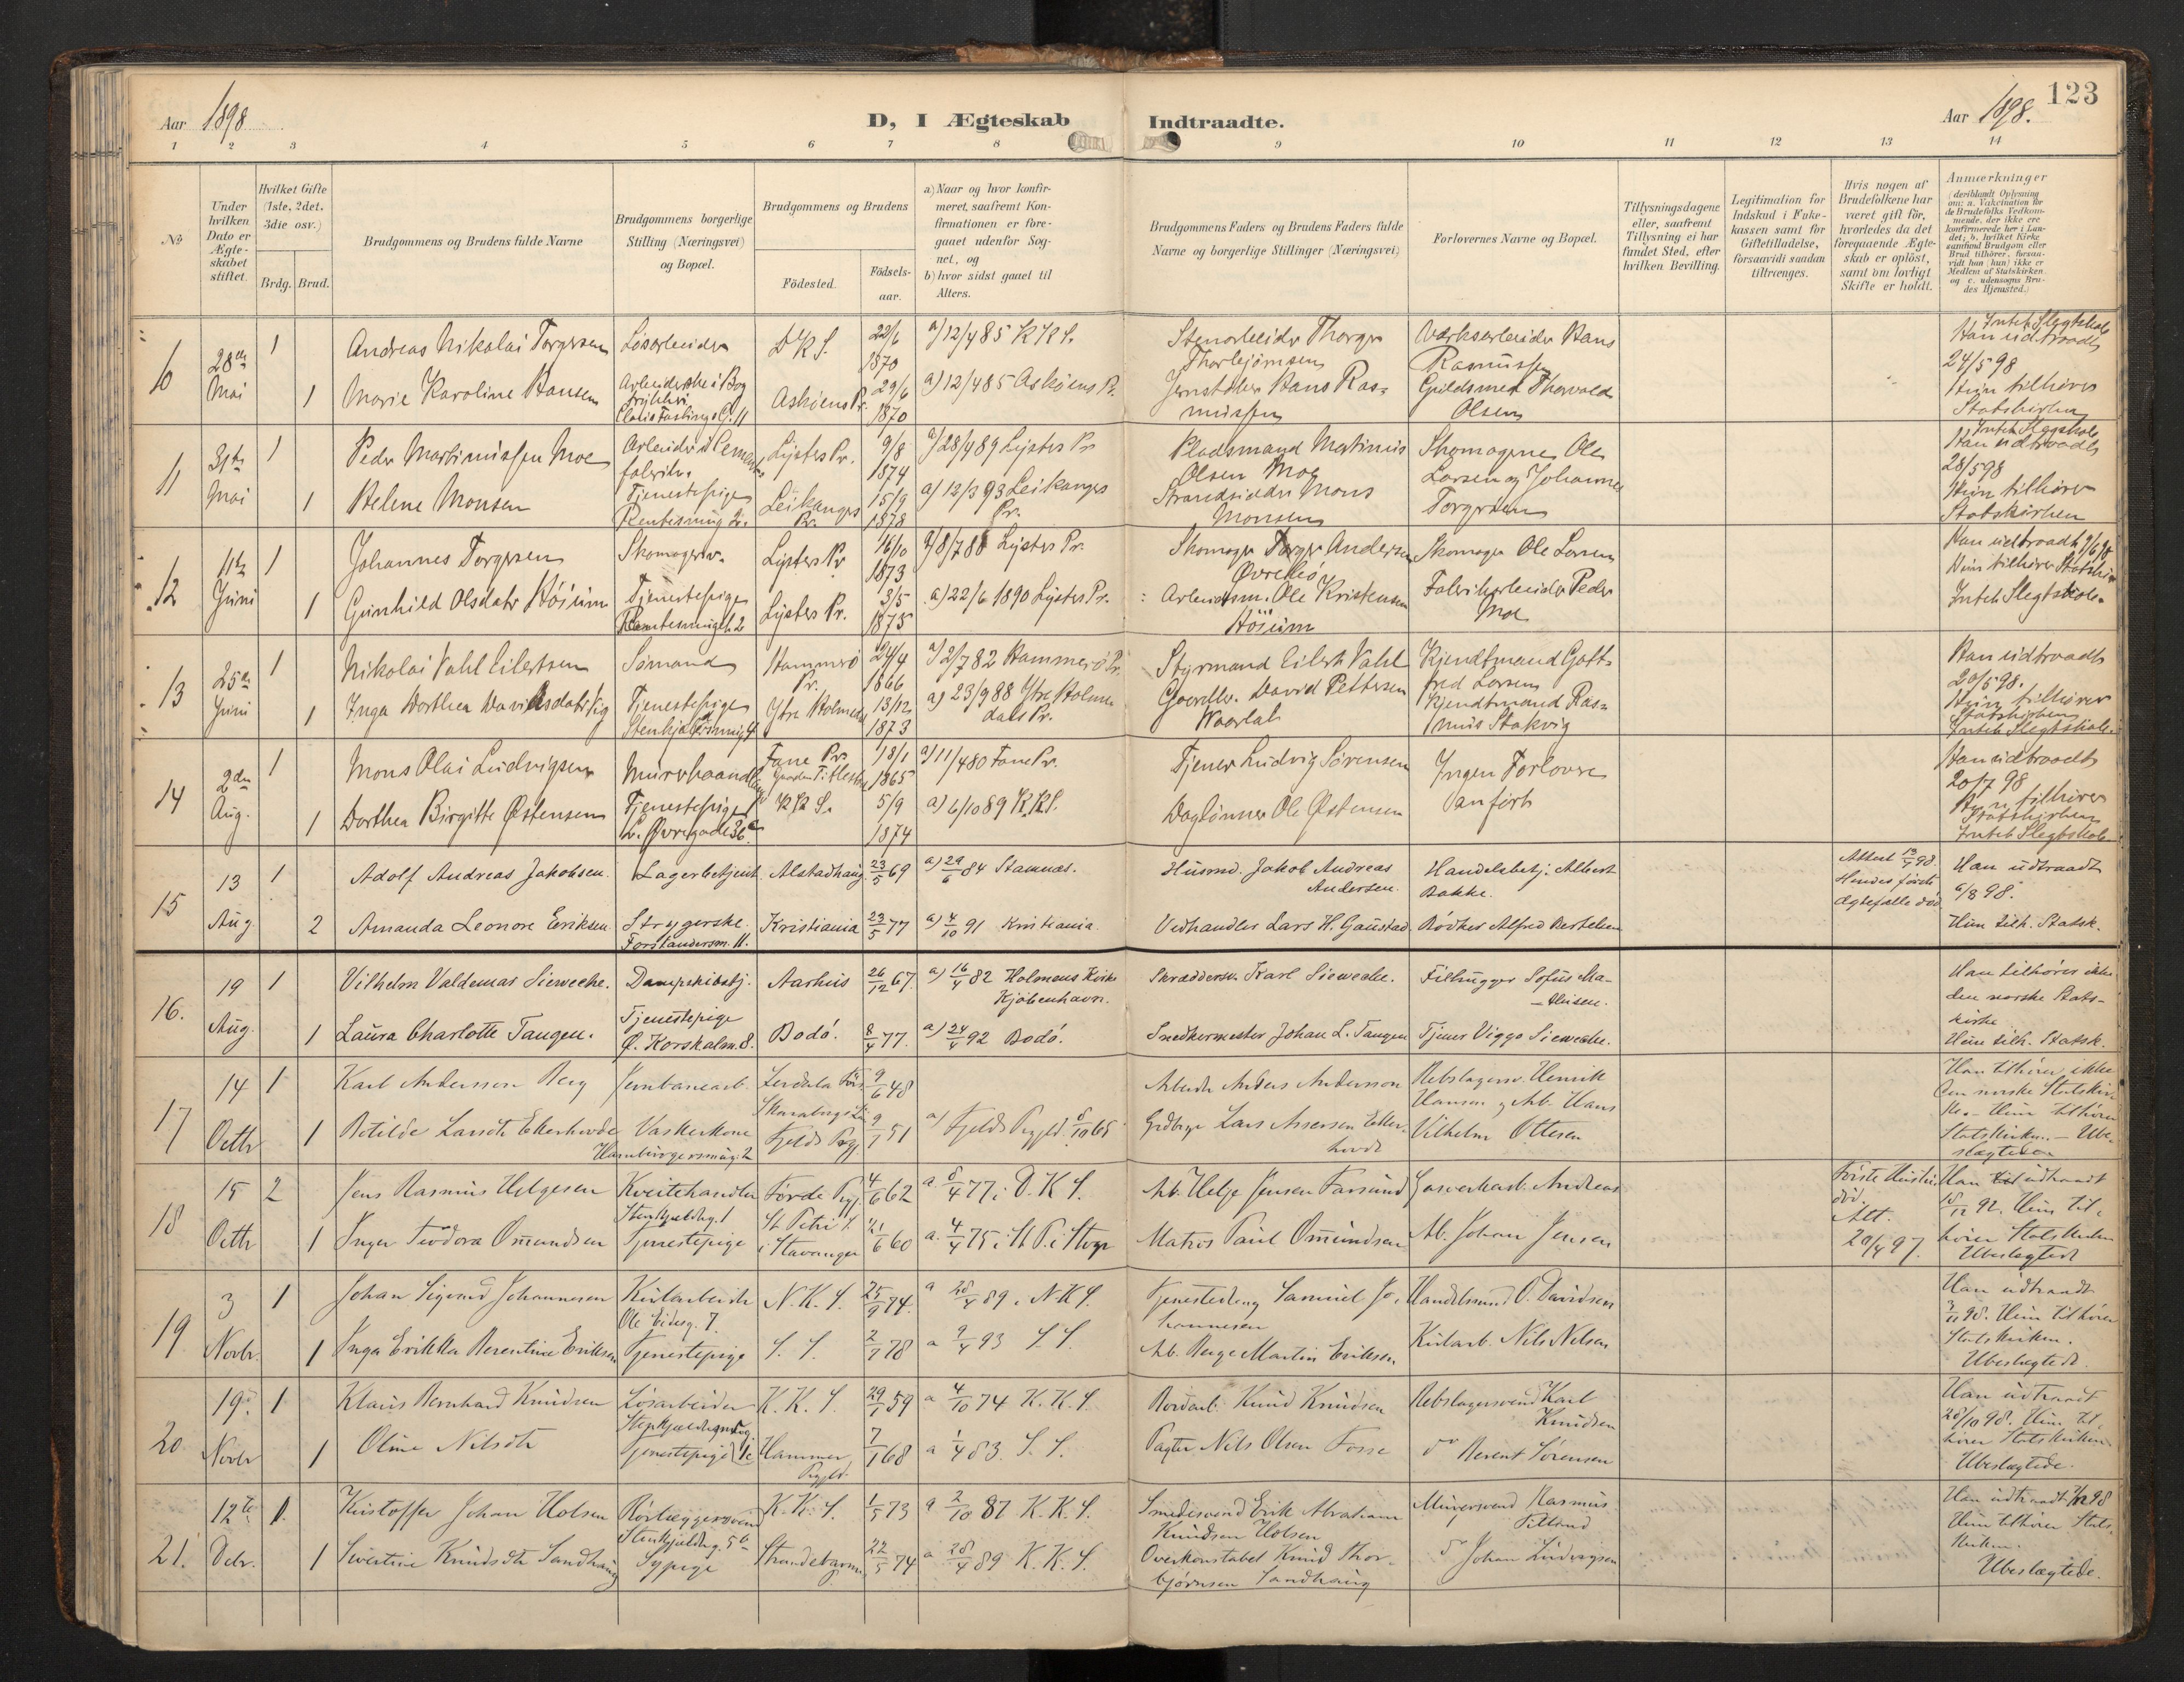 123
Aar 1898
D, I Ægteskab Indtraadte.
Aar 1898.
1 2 3 4 5 6 7 8 9 10 11 12 13 14
No
Under hvilken Dato er Ægteskabet stiftet.
Hvilket Gifte (1ste, 2det, 3die osv.)
Brdg. Brud.
Brudgommens og Brudens fulde Navne
Brudgommens borgerlige Stilling (Næringsvei) og Bopæl.
Brudgommens og Brudens
Födested.
Födselsaar.
a) Naar og hvor konfirmeret, saafremt Konfirmationen er foregaaet udenfor Sognet, og
b) hvor sidst gaaet til Alters.
Brudgommens Faders og Brudens Faders fulde Navne og borgerlige Stillinger (Næringsvei)
Forlovernes Navne og Bopæl.
Tillysningsdagene eller, saafremt Tillysning ei har fundet Sted, efter hvilken Bevilling.
Legitimation for Indskud i Enkekassen samt for Giftetilladelse, forsaavidt saadan tiltrænges.
Hvis nogen af Brudefolkene har været gift för, hvorledes da det foregaaende Ægteskab er oplöst, samt om lovligt Skifte er holdt.
Anmærkninger
(deriblandt Oplysning om: a. Vakcination for de Brudefolks Vedkommende, der ikke ere konfirmerede her i Landet; b. hvilket Kirkesamfund Brudgom eller Brud tilhörer, forsaavidt han (hun) ikke er Medlem af Statskirken og c. udensogns Brudes Hjemsted.)
10 28de Mai 1 Andreas Nikolai Torgersen Løsarbeider D K S. 22/6 1870 a) 12/4 85 K K S. Stenarbeider Thorger Thorbjørnsen Værksarbeider Hans Rasmussen
Intet Slegtskab Han udtraadt 24/5 98 Hun tilhører Statskirken
1 Marie Karoline Hansen Arbeiderske i Bogtrykkeri Claus Fastings G. 11 Askøens Pr. 29/6 1870 a) 12/4 85 Askøens Pr. Jernstøber Hans Rasmussen Guldsmed Thorvald Olsen
11 31te Mai 1 Peder Martinussen Moe Arbeider i Cementfabrik. Lysters Pr. 9/8 1874 a) 28/4 89 Lysters Pr Pladsmand Martinus Olsen Moe Skomagerne Ole Larsen og Johannes Torgersen
Intet Slegtskab Han udtraadt 28/5 98 Hun tilhører Statskirken
1 Helene Monsen Tjenestepige Leikanger Pr. 15/9 1878 a) 12/3 93 Leikanger Pr. Strandsidder Mons Monsen
12 11te Juni 1 Johannes Torgersen Skomagersv. Lysters Pr 16/10 1873 a) 8/7 88 Lysters Pr. Skomager Torger Andersen Øvrebø Skomager Ole Larsen
Han udtraadt 9/6 98 Hun tilhører Statskir Intet Slegtskab.
1 Gunhild Olsdatr Høium Tjenestepige Lysters Pr. 3/5 1875 a) 22/6 1890 Lysters Pr. Arbeidsm. Ole Kristensen Høium Fabrikarbeider Peder Moe
13 25de Juni 1 Nikolai Vahl Eilertsen Sømand Hammerø Pr. 24/4 1866 a) 2/7 82 Hammerø Pr. Styrmand Eilert Vahl Kjendtmand Gottfred Larsen
Han udtraadt 20/5 98. Hun tilhører Statskirken Intet Slegtskab.
1 Inga Dorthea Davidsdatr Vig Tjenestepige Ytre Holmedal 13/12 1873 a) 23/9 88 Ytre Holmedals Pr. Gaardbr. David Pettersen Kjendtmand Rasmus Stakvig
14 2den Aug. 1 Mons Olai Ludvigsen Murerhaandl. Fane Pr. 18/1 1865 a) 11/4 80 Fane Pr. Tjener Ludvig Sørensen Ingen Forlovere anført
Han udtraadt 20/7 98 Hun tilhører Statskirken Intet Slegtskab
1 Dorthea Birgitte Østensen Tjenestepige L. Øvregade 36 K K S. 5/9 1874 a) 6/10 89 K.K.S. Daglønner Ole Østensen
15 13 Aug 1 Adolf Andreas Jakobsen. Lagerbetjent. Alstadhaug. 23/5 69 a) 29/6 84 Stamnæs. Husmd. Jakob Andreas Andersen. Handelsbetj. Albert Bakke.
Attest 13/7 98. Hendes første Ægtefælle död. Han udtraadt 6/8 98. Hun tilh. Statsk.
2 Amanda Leonore Eriksen Strygerske. Forstandersm. 11. Kristiania 23/5 77 a) 4/10 91 Kristiania. Vedhandler Lars H. Gaustad Bödker Alfred Bertelsen
16. 19 Aug. 1 Vilhelm Valdemar Siewecke. Dampskibsbetj. Aarhus 26/12 67. a) 16/4 82 Holmens Kirke Kjøbenhavn. Skræddersv. Karl Siewecke. Filhugger Sofus Mathisen.
Han tilhører ikke den norske Statskirke Hun tilh. Statsk.
1 Laura Charlotte Tangen. Tjenestepige Ø. Korskalm. 8. Bodö. 8/4 77. a) 24/4 92 Bodö. Snedkermester Johan L. Tangen Tjener Viggo Siewecke.
17 14 Octbr 1 Karl Andersson Berg Jernbanearb. 9/6 48 Arbeider Anders Andersson Rebslagersv. Henrik Hansen og Arb. Hans Vilhelm Ottesen
Han tilhører ikke den norske Statskirke. Hun tilhører Statskirken. – Ubeslægtede
1 Botilde Larsdtr Ekerhovde Vaskerkone Hamburgersmug. 2 Fjelds Prgj. 9/1 51 a) Fjelds Prgjld. 8/10 65 Gdbrger Lars Assersen Ekerhovde
18 15 Octbr 2 Jens Rasmus Helgesen Kveitehandler Stenkjeldrg. 1 Førde Prgj. 4/6 62 a. 8/4 77 i D.K.S. Arb. Helge Jensen Farsund Gasverkarb. Andreas
Første Hustru död. Att. 20/4 97. Han udtraadt 18/12 92. Hun tilhører Statskirken Ubeslægtede
1 Inger Teodora Omundsen Tjenestepige St Petri S. i Stavanger 21/6 60 a. 4/4 75 i St P. i Stvgr Matros Paul Omundsen Ab. Johan Jensen
19 3 Novbr. 1 Johan Sigvard Johannesen Kularbeider Ole Eidesg. 7. N.K.S. 25/9 74. a 28/4 89. N.K.S. Tjenestedreng Samuel Johannesen Handelsmand O. Davidsen
Han udtraadt 3/11 98. Hun tilhører Statskirken. Ubeslægtede.
1 Inga Erikka Berentine Eriksen Tjenestepige S.S. 2/1 78 a 9/4 93 S.S. Ab. Berge Martin Eriksen Kularb. Nils Nilsen
20 19. Novbr 1 Klaus Bernhard Knudsen Løsarbeider K.K.S. 29/1 59 a 4/10 74 K.K.S. Bordarb. Knud Knudsen Rebslagersvend Karl Knudsen
Han udtraadt 28/10 98. Hun tilhører Statskirken Ubeslægtede.
1 Oline Nilsdtr Tjenestepige Hammer Prgjld. 7/1 68 a 1/4 83. S.S. Pagter Nils Olsen Fosse do Berent Sørensen
21. 12te Debr. 1. Kristoffer Johan Holsen Rörlæggersvend Stenkjeldrg. 5 K.K.S. 1/5 73 a 2/10 87 K.K.S. Smedesvend Erik Abraham Knudsen Holsen Murersvend Rasmus
Han udtraadt 98 Hun tilhører Statskirken. Ubeslægtede.
1 Sivertine Knudsdtr Sandhaug Sypige Strandebarm 22/5 74 a 28/4 89 K.K.S. Overkonstabel Knud Thorbjørnsen Sandhaug do Johan Ludvigsen